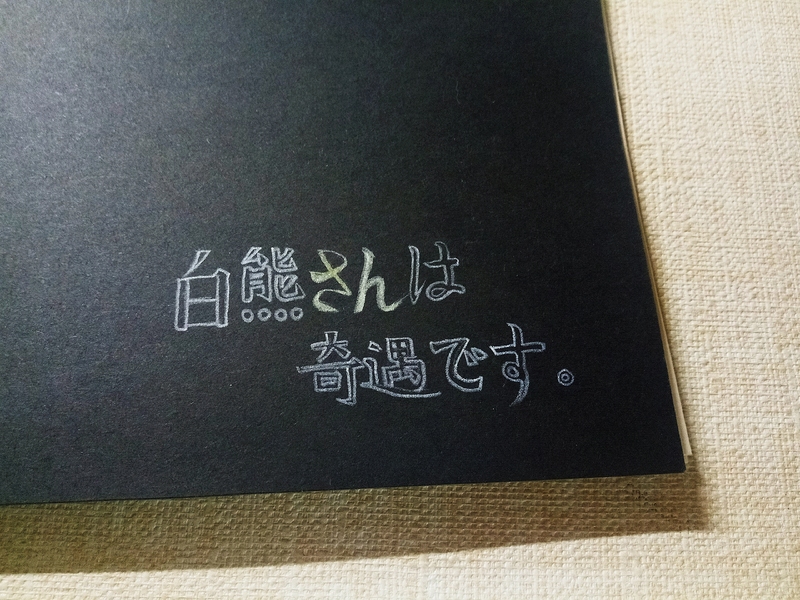 白熊さんは
奇遇です。